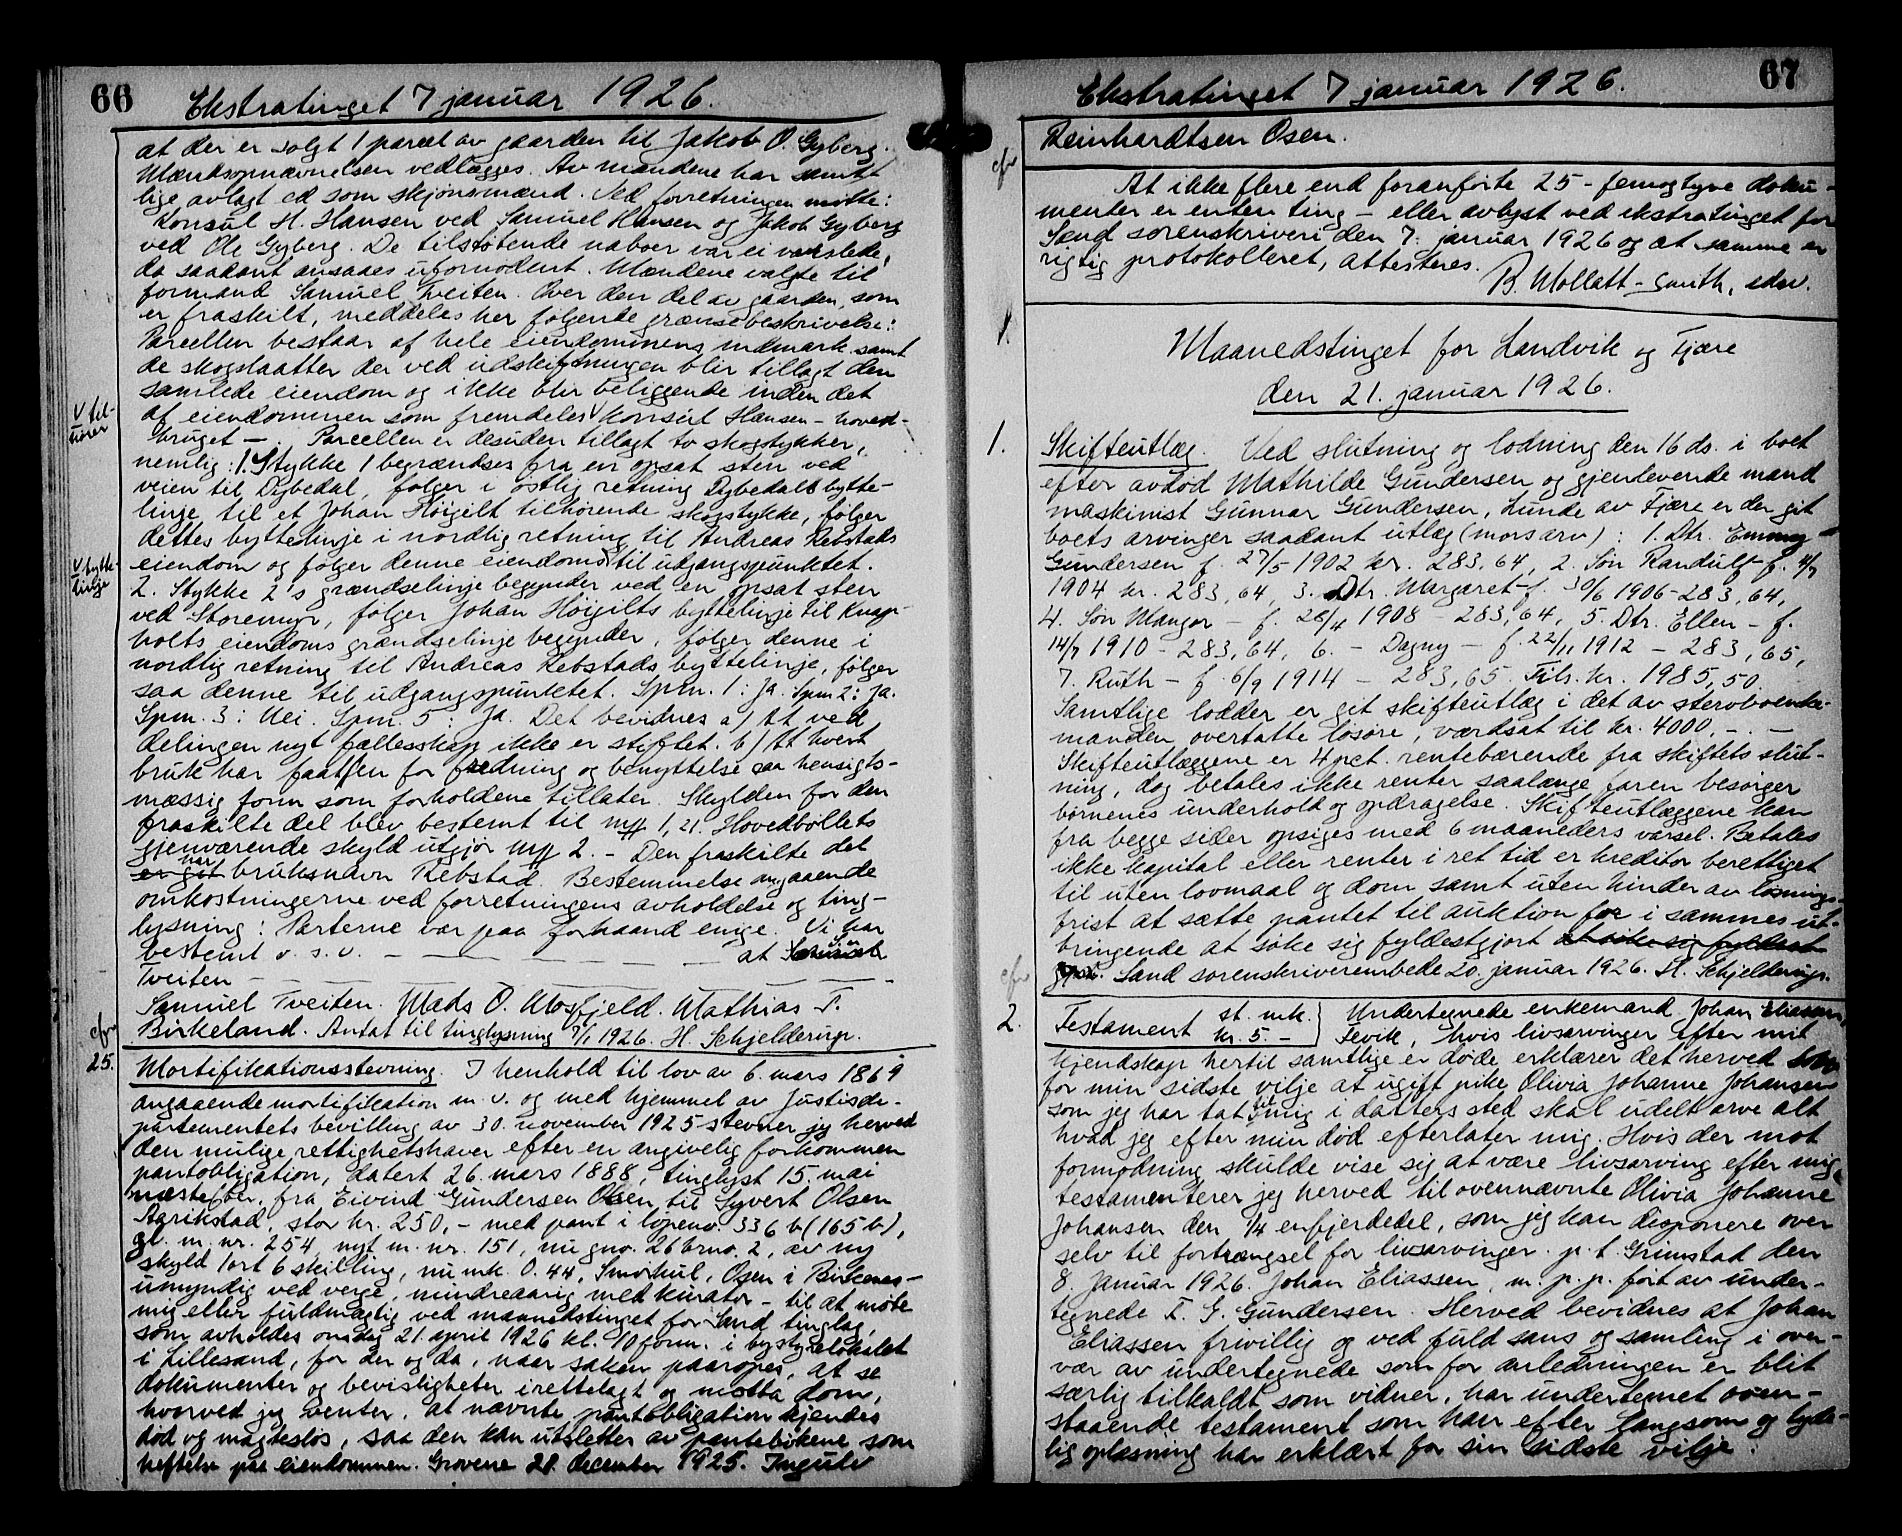 66
Ekstratinget 7 januar 1926.
at der er solgt 1 parcel av gaarden til Jakob O. Gyberg.
Mændsopnævnelsen vedlægges. Av mændene har samt
lige avlagt ed som skjønsmænd. Ved forretningen møtte:
Konsul H. Hansen ved Samuel Hansen og Jakob Gyberg
ved Ole Gyberg. De tilstøtende naboer var ei varslede,
da saadant ansaaes ufornødent. Mændene valgte til
formand Samuel Tveiten. Over den del av gaarden, som
er fraskilt, meddeles her følgende grænsebeskrivelse:
Parcellen bestaar af hele eiendommens indmark samt
de skogstaatter der ved udskiftningen blir tillagt den
samlede eiendom og ikke blir beliggende inden det
af eiendommen som fremdeles V konsul Hansen - hoved-
V til-
hører
bruget -. Parcellen er desuden tillagt to skogstykker,
nemlig: 1. Stykke 1 begrændses fra en opsat sten ved
veien til Dybedal, følger i østlig retning Dybedals bytte-
linje til et Johan Höigilt tilhørende skogstykke, følger
dettes byttelinje i nordlig retning til Andreas Rebstads
eiendom og følger denne eiendoms V til udgangspunktet.
V bytte-
linje
2. Stykke 2's grændselinje begynder ved en opsat sten
ved Storemyr, følger Johan Höigilts byttelinje til Knap-
holts eiendoms grændselinje begynder, følger denne i
nordlig retning til Andreas Rebstads byttelinje, følger
saa denne til udgangspunktet. Spm. 1: Ja. Spm 2: Ja.
Spm. 3: Nei. Spm. 5: Ja. Det bevidnes a) At ved
delingen nyt fællesskap ikke er stiftet. b) At hvert
bruk har faat en for fredning og benyttelse saa hensigts-
mæssig form som forholdene tillater. Skylden for den
fraskilte del blev bestemt til mk 1,21. Hovedbøllets
gjenværende skyld utgjør mk 2. - Den fraskilte del
er git har bruksnavn Rebstad. Bestemmelse angaaende
omkostningerne ved forretningens avholdelse og ting-
lysning: Parterne var paa forhaand enige. Vi har
bestemt o. s. v. - - - - - - at Samuel
Tveiten - - - - - -
Samuel Tveiten. Mads O. Mosfjeld. Mathias T.
Birkeland. Antat til tinglysning 7/1 1926. H. Schjelderup.
cfr
25.
Mortifikationsstevning. I henhold til lov av 6. mars 1869
angaaende mortifikation m. v. og med hjemmel av Justisde-
partementets bevilling av 30. november 1925 stevner jeg herved
den mulige rettighetshaver efter en angivelig forkommen
pantobligation, datert 26. mars 1888, tinglyst 15. mai
næstefter, fra Eivind Gundersen Osen til Syvert Olsen
Aarikstad, stor kr. 250,- med pant i løpenr. 336 b (165 b),
gl. m. nr. 254, nyt m. nr. 151, nu gno. 26 brno. 2, av ny
skyld 1 ort 6 skilling, nu mk. 0.44, Smorhul, Osen i Birkenes -
umyndig ved verge, mindreaarig med kurator - til at møte
mig eller fuldmægtig ved maanedstinget for Sand tinglag,
som avholdes onsdag 21. april 1926 kl. 10 form. i bystyrelokalet
i Lillesand, for der og da, naar saken paaropes, at se
dokumenter og bevisligheter irettelagt og motta dom,
hvorved jeg venter, at nævnte pantobligation kjendes
død og magtesløs, saa den kan utslettes av pantebøkene som
heftelse paa eiendommen. Grovene 28. december 1925. Ingulv
67
Ekstratinget 7 januar 1926.
Reinhardtsen Osen.
cfr
At ikke flere end foranførte 25 - femogtyve doku-
menter er enten ting - eller avlyst ved ekstratinget for
Sand sorenskriveri den 7. januar 1926 og at samme er
rigtig protokolleret, attesteres.
B. Mollatt-Smith, edsv.
Maanedstinget for Landvik og Fjære
den 21. januar 1926.
1.
Skifteutlæg. Ved slutning og lodning den 16 ds. i boet
efter avdød Mathilde Gundersen og gjenlevende mand
maskinist Gunnar Gundersen, Lunde av Fjære er der git
boets arvinger saadant utlæg (morsarv): 1. Dtr. Emmy
Gundersen f. 27/5 1902 kr. 283,64, 2. Søn Randulf f. 4/7
1904 kr. 283,64, 3. Dtr. Margaret f. 30/6 1906 - 283,64,
4. Søn Mangor - f. 28/4 1908 - 283,64, 5. Dtr. Ellen - f.
14/7 1910 - 283,64, 6. - Dagny - f. 22/11 1912 - 283,65,
7. Ruth - f. 6/9 1914 - 283,65. Tils. kr. 1985,50
Samtlige lodder er git skifteutlæg i det av stervboenke-
manden overtatte løsøre, værdsat til kr. 4000,-.-
Skifteutlæggene er 4 pct. rentebærende fra skiftets slut-
ning, dog betales ikke renter saalænge faren besørger
børnenes underhold og opdragelse. Skifteutlæggene kan
fra begge sider opsiges med 6 maaneders varsel. Betales
ikke kapital eller renter i ret tid er kreditor berettiget
til uten lovmaal og dom samt uten hinder av løsnings-
frist at sætte pantet til auktion for i sammes ut-
bringende at søke sig fyldestgjort at søke sig fyldest
gjort. Sand sorenskriverembede 20. januar 1926. H. Schjelderup.
cfr
2.
Testament st. mk. kr. 5.-
Undertegnede enkemand Johan Eliassen,
Fevik, hvis livsarvinger efter mit
kjendskap hertil samtlige er døde erklærer det herved som
for min sidste vilje at ugift pike Olivia Johanne Johansen
som jeg har tat til mig i datters sted skal udelt arve alt
hvad jeg efter min død efterlater mig. Hvis der mot
formodning skulde vise sig at være livsarving efter mig
testamenterer jeg herved til ovennævnte Olivia Johanne
Johansen den 1/4 enfjerdedel, som jeg kan disponere over
selv til fortrængsel for livsarvinger. p. t. Grimstad den
8. januar 1926. Johan Eliassen m. p. p. ført av under-
tegnede T. G. Gundersen. Herved bevidnes at Johan
Eliassen frivillig og ved fuld sans og samling i over-
vær av undertegnede som for anledningen er blit
særlig tilkaldt som vidner, har undertegnet oven-
staaende testament som han efter langsom og tyde-
lig oplæsning har erklært for sin sidste vilje.